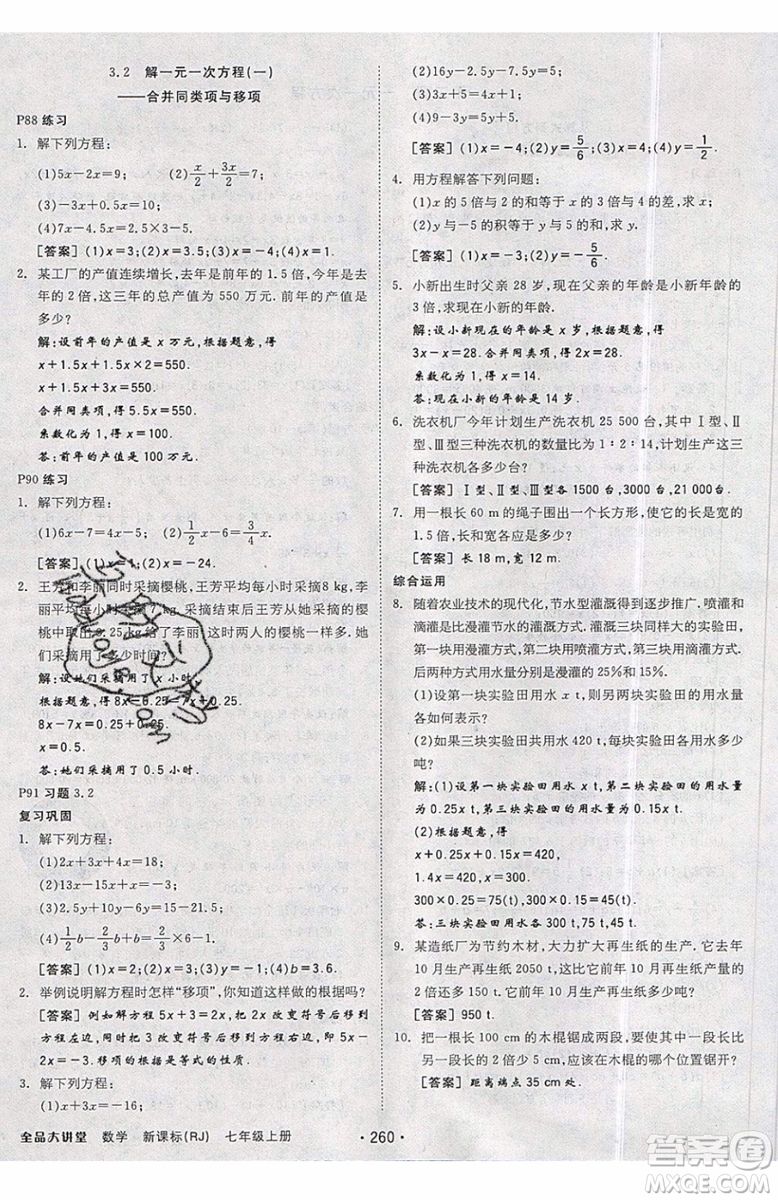 3.2 解一元一次方程(一)
——合并同类项与移项
P88 练习
1. 解下列方程:
(1)5x-2x=9; (2)x/2+3x/2=7;
(3)-3x+0.5x=10;
(4)7x-4.5x=2.5×3-5.
[答案] (1)x=3;(2)x=3.5;(3)x=-4;(4)x=1.
2. 某工厂的产值连续增长,去年是前年的 1.5 倍,今年是去
年的 2 倍,这三年的总产值为 550 万元.前年的产值是
多少?
解:设前年的产值是 x 万元,根据题意,得
x+1.5x+1.5x×2=550.
合并同类项,得 5.5x=550.
系数化为1,得 x=100.
答:前年的产值是 100 万元.
P90 练习
1. 解下列方程:
(1)6x-7=4x-5; (2)1/2x-6=3/4x.
[答案] (1)x=1;(2)x=-24.
2. 王芳和李丽同时采摘樱桃,王芳平均每小时采摘8 kg,李
丽平均每小时采摘7 kg.采摘结束后王芳从她采摘的樱
桃中取出 0.25 kg给了李丽,这时两人的樱桃一样多.她
们采摘用了多少时间?
解:设她们采摘用了 x 小时.
根据题意,得 8x-0.25=7x+0.25
8x-7x=0.25+0.25
x=0.5.
答:她们采摘了 0.5 小时.
P91 习题 3.2
复习巩固
1. 解下列方程:
(1)2x+3x+4x=18;
(2)13x-15x+x=-3;
(3)2.5y+10y-6y=15-21.5;
(4)1/2b-2/3b+b=2/3×6-1.
[答案] (1)x=2;(2)x=3;(3)y=-1;(4)b=3.6.
2. 举例说明解方程时怎样“移项”,你知道这样做的根据吗?
[答案] 例如解方程 5x+3=2x,把 2x 改变符号后移到
方程左边,同时把 3 改变符号后移到方程右边,即 5x-
2x=-3,移项的根据是等式的性质 1.
3. 解下列方程:
(1)x+3x=-16;
(2)16y-2.5y-7.5y=5;
(3)3x+5=4x+1;
(4)9-3y=5y+5.
[答案] (1)x=-4;(2)y=5/6;(3)x=4;(4)y=1/2.
4. 用方程解答下列问题:
(1)x 的 5 倍与 2 的和等于 x 的 3 倍与 4 的差,求 x;
(2)y 与-5 的积等于 y 与 5 的和,求 y.
[答案] (1)x=-3;(2)y=-5/6.
5. 小新出生时父亲 28 岁,现在父亲的年龄是小新年龄的
3 倍,求现在小新的年龄.
解:设小新现在的年龄是 x 岁,根据题意,得
3x-x=28.合并同类项,得 2x=28.
系数化为1,得 x=14.
答:现在小新的年龄是 14 岁.
6. 洗衣机厂今年计划生产洗衣机 25 500 台,其中Ⅰ型、Ⅱ
型、Ⅲ型三种洗衣机的数量比为 1∶2∶14,计划生产这三
种洗衣机各多少台?
[答案] Ⅰ型、Ⅱ型、Ⅲ型各 1500 台,3000 台,21 000 台.
7. 用一根长 60 m 的绳子围出一个长方形,使它的长是宽的
1.5 倍,长和宽各应是多少?
[答案] 长 18 m,宽 12 m.
综合运用
8. 随着农业技术的现代化,节水型灌溉得到逐步推广.喷灌和
滴灌是比漫灌节水的灌溉方式.灌溉三块同样大的实验田,
第一块用漫灌方式,第二块用喷灌方式,第三块用滴灌方式.
后两种方式用水量分别是漫灌的 25%和15%.
(1)设第一块实验田用水 x t,则另两块实验田的用水量
各如何表示?
(2)如果三块实验田共用水 420 t,每块实验田各用水多少吨?
解:(1)设第一块实验田用水 x t,第二块实验田的用水量
为 0.25x t,第三块实验田的用水量为 0.15x t.
(2)根据题意,得
x+0.25x+0.15x=420,
1.4x=420,x=300.
300×0.25=75(t),300×0.15=45(t).
答:三块实验田用水各 300 t,75 t,45 t.
9. 某造纸厂为节约木材,大力扩大再生纸的生产.它去年
10 月生产再生纸 2050 t,这比它前年 10 月再生纸产量的
2 倍还多 150 t.它前年 10 月生产再生纸多少吨?
[答案] 950 t.
10. 把一根长 100 cm 的木棍锯成两段,要使其中一段长比
另一段长的 2 倍少 5 cm,应该在木棍的哪个位置锯开?
[答案] 距离端点 35 cm 处.
全品大讲堂 数学 新课标(RJ) 七年级上册 ·260·
作业帮